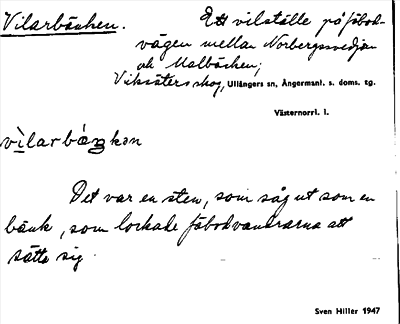 Vilarbänken.
Ett vilställe på fäbod-
vägen mellan Norbergssedjan
och Malbäcken;
Viksäters skog, Ullångers sn, Ångermanl. s. doms. tg.
Västernorrl. l.
vìlarbáŋkən
Det var en sten, som såg ut som en
bänk, som lockade fäbodvandrarna att
sätta sig.
Sven Hiller 1947